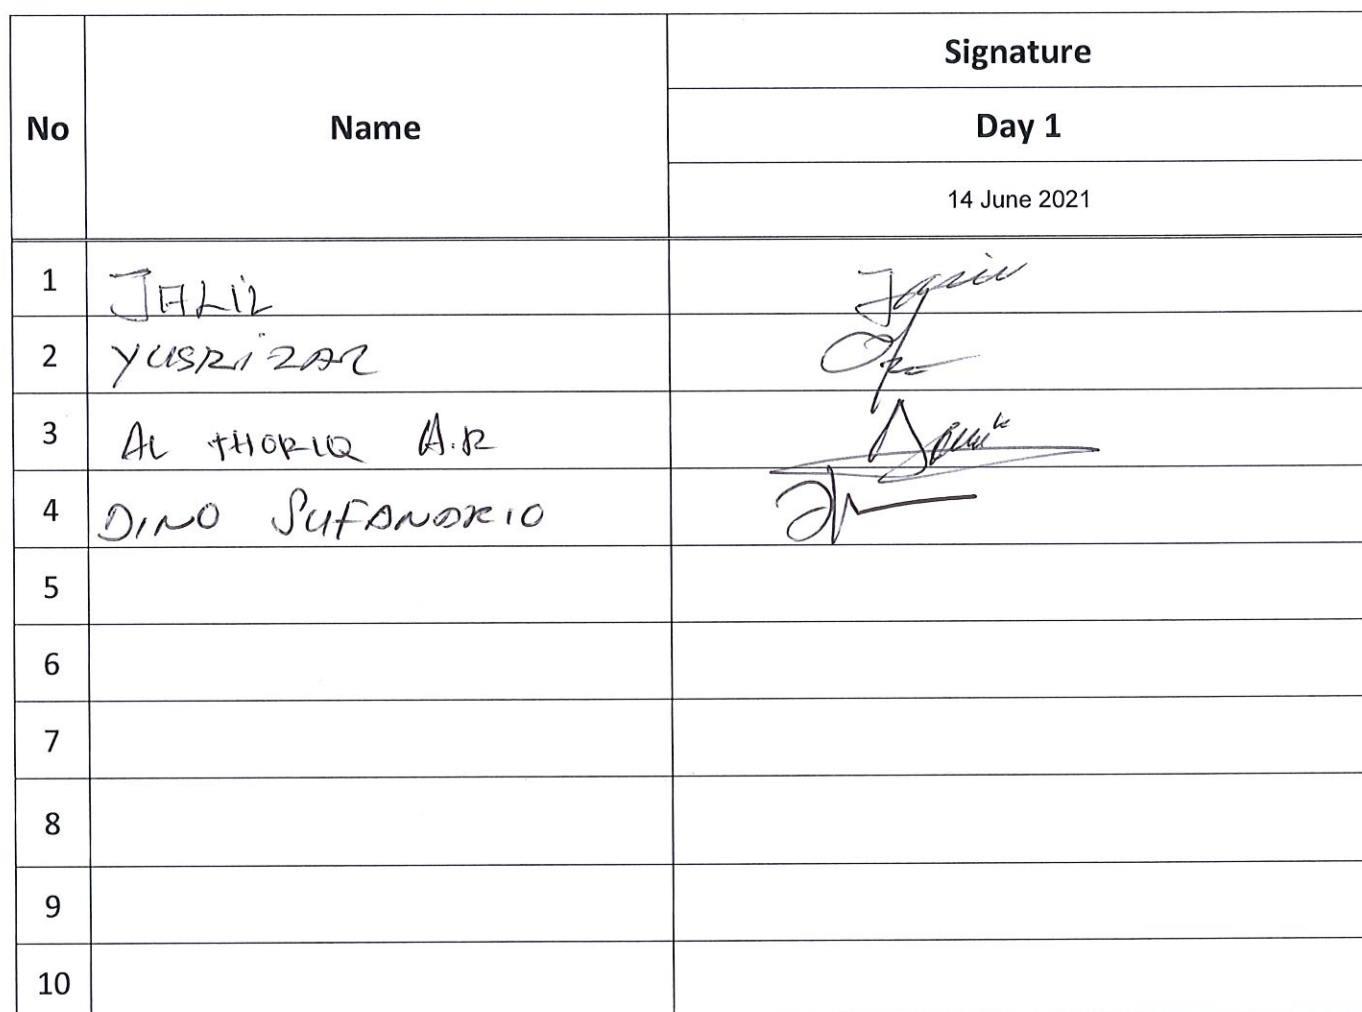 No Name Signature
Day 1
14 June 2021
1 JALIL
2 YUSRIZAL
3 AL THORIQ A.R
4 DINO SUFANDRIO
5
6
7
8
9
10